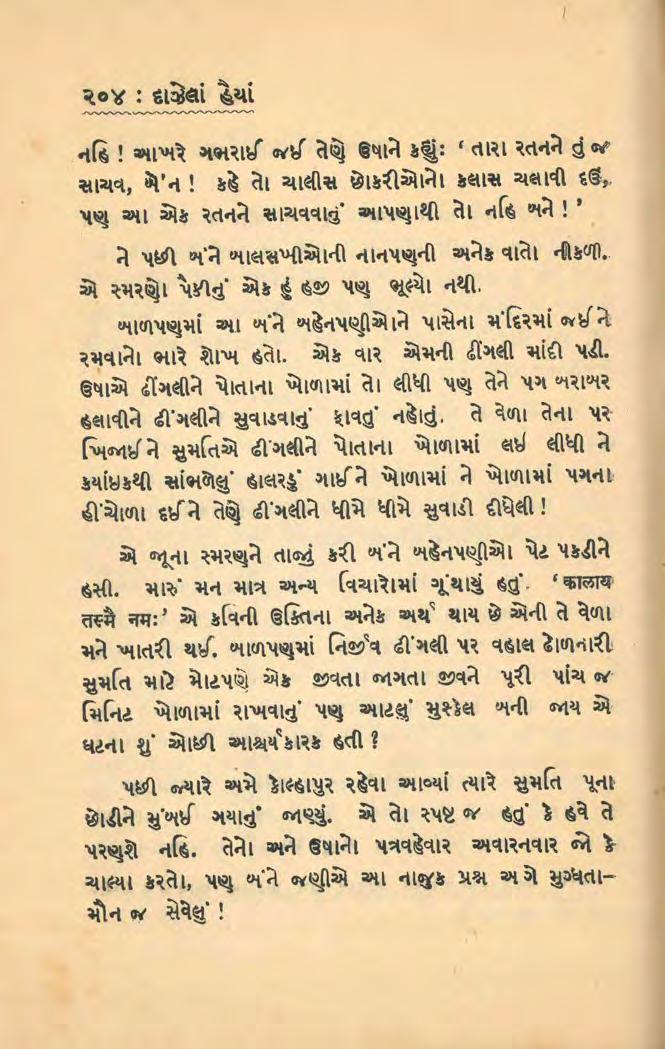 ૨૦૪ : દાઝેલાં હૈયાં
નહિ ! આખરે ગભરાઈ જઈ તેણે ઉષાને કહ્યું: ‘ તારા રતનને તું જ
સાચવ, બે'ન ! કહે તો ચાલીસ છોકરીઓનો કલાસ ચલાવી દઉં,
પણ આ એક રતનને સાચવવાનું આપણાથી તો નહિ બને ! ’
ને પછી બંને બાલસખીઓની નાનપણની અનેક વાતો નીકળી.
એ સ્મરણો પૈકીનું એક હું હજી પણ ભૂલ્યો નથી.
બાળપણમાં આ બંને બહેનપણીઓને પાસેના મંદિરમાં જઈને
રમવાનો ભારે શોખ હતો. એક વાર એમની ઢીંગલી માંદી પડી.
ઉષાએ ઢીંગલીને પોતાના ખોળામાં તો લીધી પણ તેને પગ બરાબર
હલાવીને ઢીંગલીને સુવાડવાનું ફાવતું નહોતું. તે વેળા તેના પર
ખિજાઈને સુમતિએ ઢીંગલીને પોતાના ખોળામાં લઈ લીધી ને
કયાંઈકથી સાંભળેલું હાલરડું ગાઈને ખોળામાં ને ખોળામાં પગના
હીંચોળા દઈને તેણે ઢીંગલીને ધીમે ધીમે સુવાડી દીધેલી !
એ જૂના સ્મરણને તાજું કરી બંને બહેનપણીઓ પેટ પકડીને
હસી. મારું મન માત્ર અન્ય વિચારોમાં ગૂંથાયું હતું. ‘ कालाय
तस्मै नमः ’ એ કવિની ઉક્તિના અનેક અર્થ થાય છે એની તે વેળા
મને ખાતરી થઈ. બાળપણમાં નિર્જીવ ઢીંગલી પર વહાલ ઢોળનારી
સુમતિ માટે મોટપણે એક જીવતા જાગતા જીવને પૂરી પાંચ જ
મિનિટ ખોળામાં રાખવાનું પણ આટલું મુશ્કેલ બની જાય એ
ઘટના શું ઓછી આશ્ચર્યકારક હતી ?
પછી જ્યારે અમે કોલ્હાપુર રહેવા આવ્યાં ત્યારે સુમતિ પૂના
છોડીને મુંબઈ ગયાનું જાણ્યું. એ તો સ્પષ્ટ જ હતું કે હવે તે
પરણશે નહિ. તેનો અને ઉષાનો પત્રવહેવાર અવારનવાર જો કે
ચાલ્યા કરતો, પણ બંને જણીએ આ નાજુક પ્રશ્ન અંગે મુગ્ધતા–
મૌન જ સેવેલું !